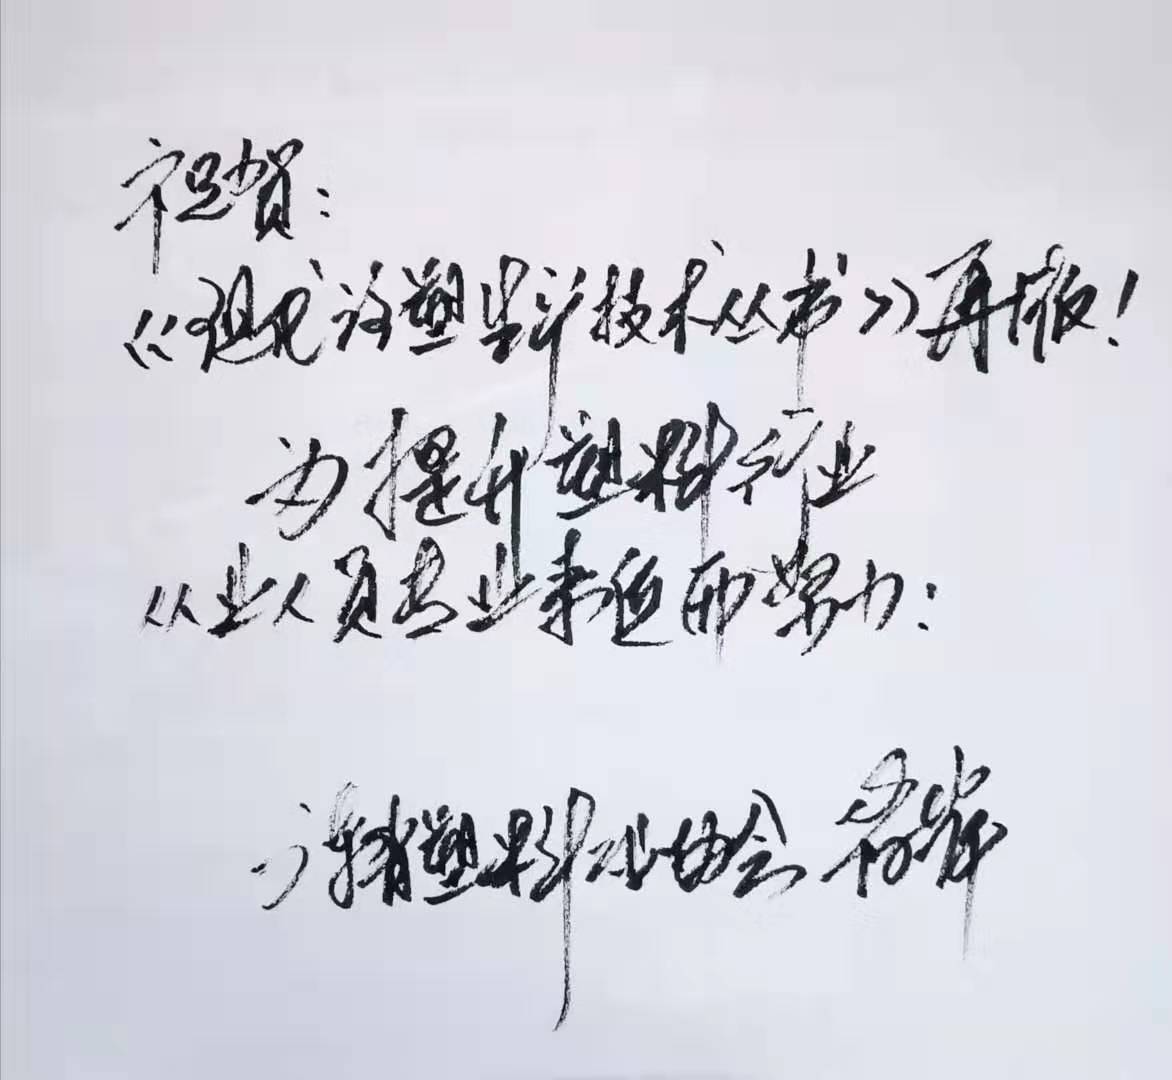 祝賀:
《塑料技术丛书》再版!
为提升塑料行业
从业人员专业素质而努力:
广东省塑料工业协会 符岸